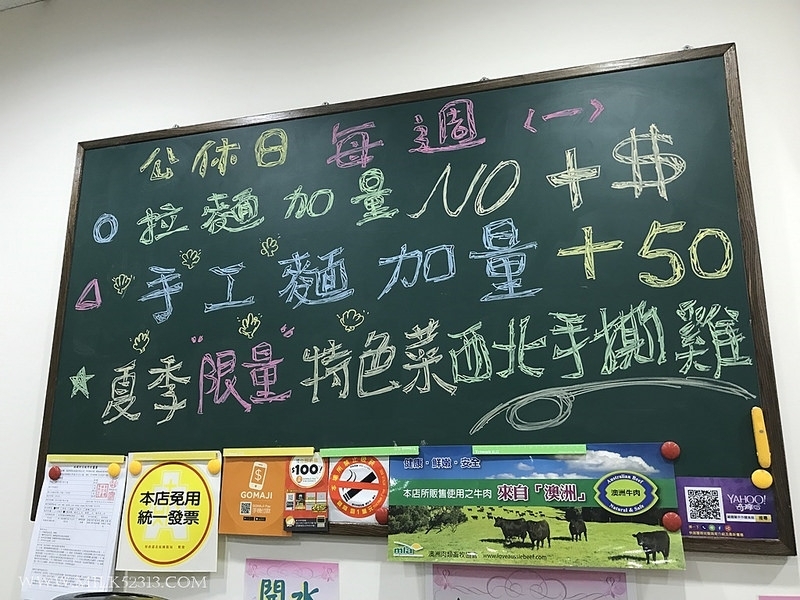 公休日 每週〈一〉
拉麵加量NO+$
手工麵加量+50
夏季"限量"特色菜西北手撕雞
本店免用
統一發票
GOMAJI
$100
健康・鮮嫩・安全
本店所販售使用之牛肉 來自「澳洲」
Australian Beef
澳洲牛肉
Natural & Safe
mla
澳洲肉類畜牧協會 www.loveaussiebeef.com
YAHOO!
奇摩
開水
WWW.MILK52313.COM